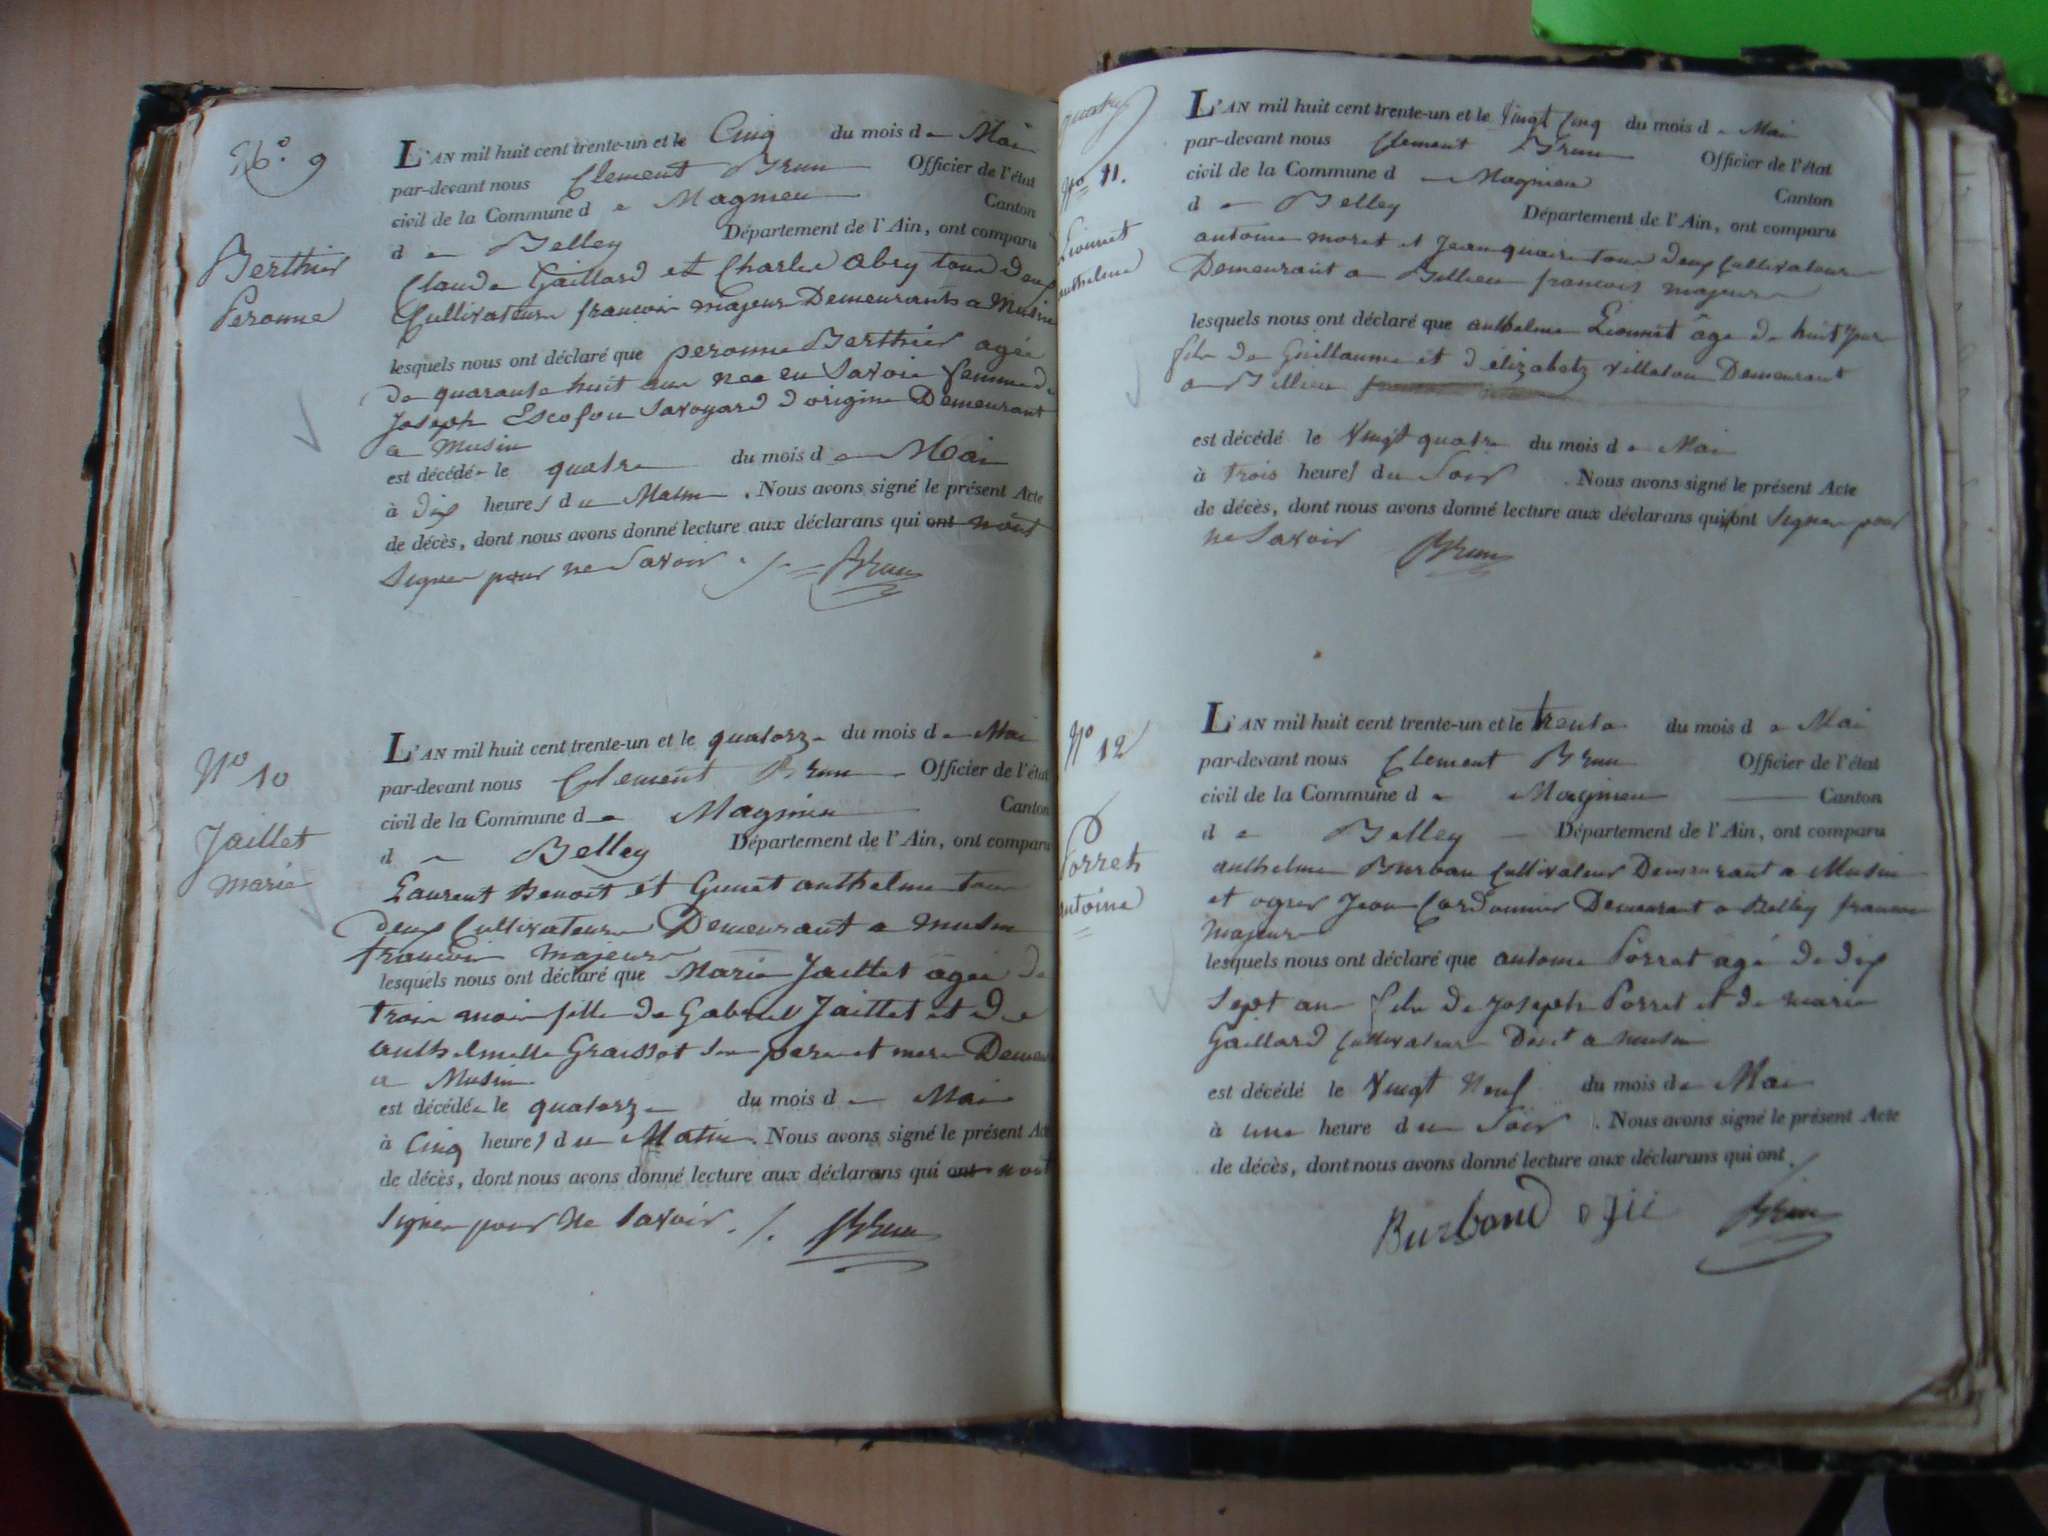 N.º 9
Berthier
Peronne
L'AN mil huit cent trente-un et le Cinq du mois de Mai
par-devant nous Clement Brun Officier de l'état
civil de la Commune de Magnieu Canton
de Belley Département de l'Ain, ont comparu
Claude Gaillard et Charle abry tous deux
Cultivateurs francois majeurs Demeurants a Musin
lesquels nous ont déclaré que peronne Berthier agée
de quarante huit ans nee en Savoie femme de
Joseph Escofou Savoyard d'origine Demeurant
a Musin
est décédée le quatre du mois de Mai
à dix heures du Matin. Nous avons signé le présent Acte
de décès, dont nous avons donné lecture aux déclarans qui ont nont
Signer pour ne Savoir . /. Brun
Nº 10
Jaillet
marie
L'AN mil huit cent trente-un et le quatorze du mois de Mai
par-devant nous Clement Brun Officier de l'état
civil de la Commune de Magnieu Canton
de Belley Département de l'Ain, ont comparu
Laurent Benoit et Gunet anthelme tous
deux Cultivateurs Demeurant a musin
francois majeurs
lesquels nous ont déclaré que Marie Jaillet âgée de
trois mois fille de Gabriel Jaillet et de
anthelmette Graissot ses pere et mere Demeu
a Musin
est décédée le quatorze du mois de Mai
à Cinq heures du Matin. Nous avons signé le présent Acte
de décès, dont nous avons donné lecture aux déclarans qui ont nont
Signer pour Ne Savoir . /. Brun
Nº 11.
Lionnet
anthelme
L'AN mil huit cent trente-un et le Vingt Cinq du mois de Mai
par-devant nous Clement Brun Officier de l'état
civil de la Commune de Magnieu Canton
de Belley Département de l'Ain, ont comparu
antoine moret et Jean quaire tous deux Cultivateurs
Demeurant a Billieu francois majeurs
lesquels nous ont déclaré que anthelme Lionnet âge de huit jour
fils de Guillaume et d'élizabetz Demeurant
a Billieu
est décédé le Vingt quatre du mois de Mai
à trois heures du Soir . Nous avons signé le présent Acte
de décès, dont nous avons donné lecture aux déclarans qui ont Signer pour
ne Savoir Brun
Nº 12
Porret
antoine
L'AN mil huit cent trente-un et le trente du mois de Mai
par-devant nous Clement Brun Officier de l'état
civil de la Commune de Magnieu Canton
de Belley Département de l'Ain, ont comparu
anthelme Burban Cultivateur Demeurant a Musin
et ogier Jean Cordonnier Demeurant a Belley francois
majeurs
lesquels nous ont déclaré que antoine Porret agé de dix
Sept ans fils de Joseph Porret et de marie
Gaillard Cultivateurs Dent a musin
est décédé le Vingt Neuf du mois de Mai
à une heure du Soir . Nous avons signé le présent Acte
de décès, dont nous avons donné lecture aux déclarans qui ont
Burband ogié Brun